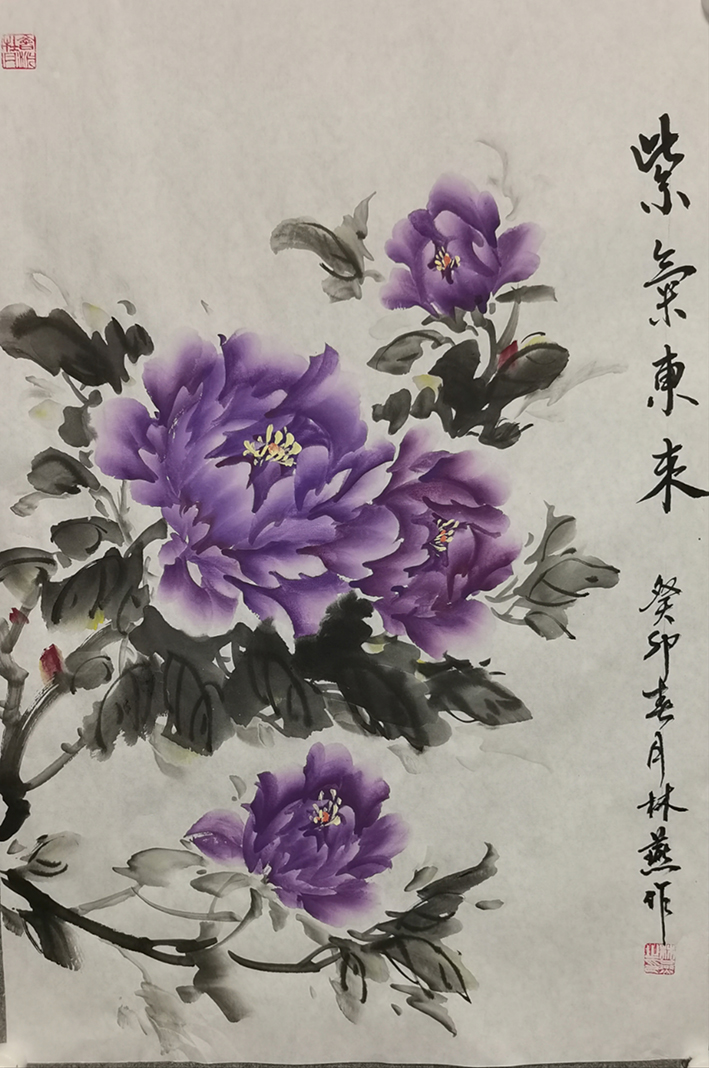 紫氣東来
癸卯春月林燕作